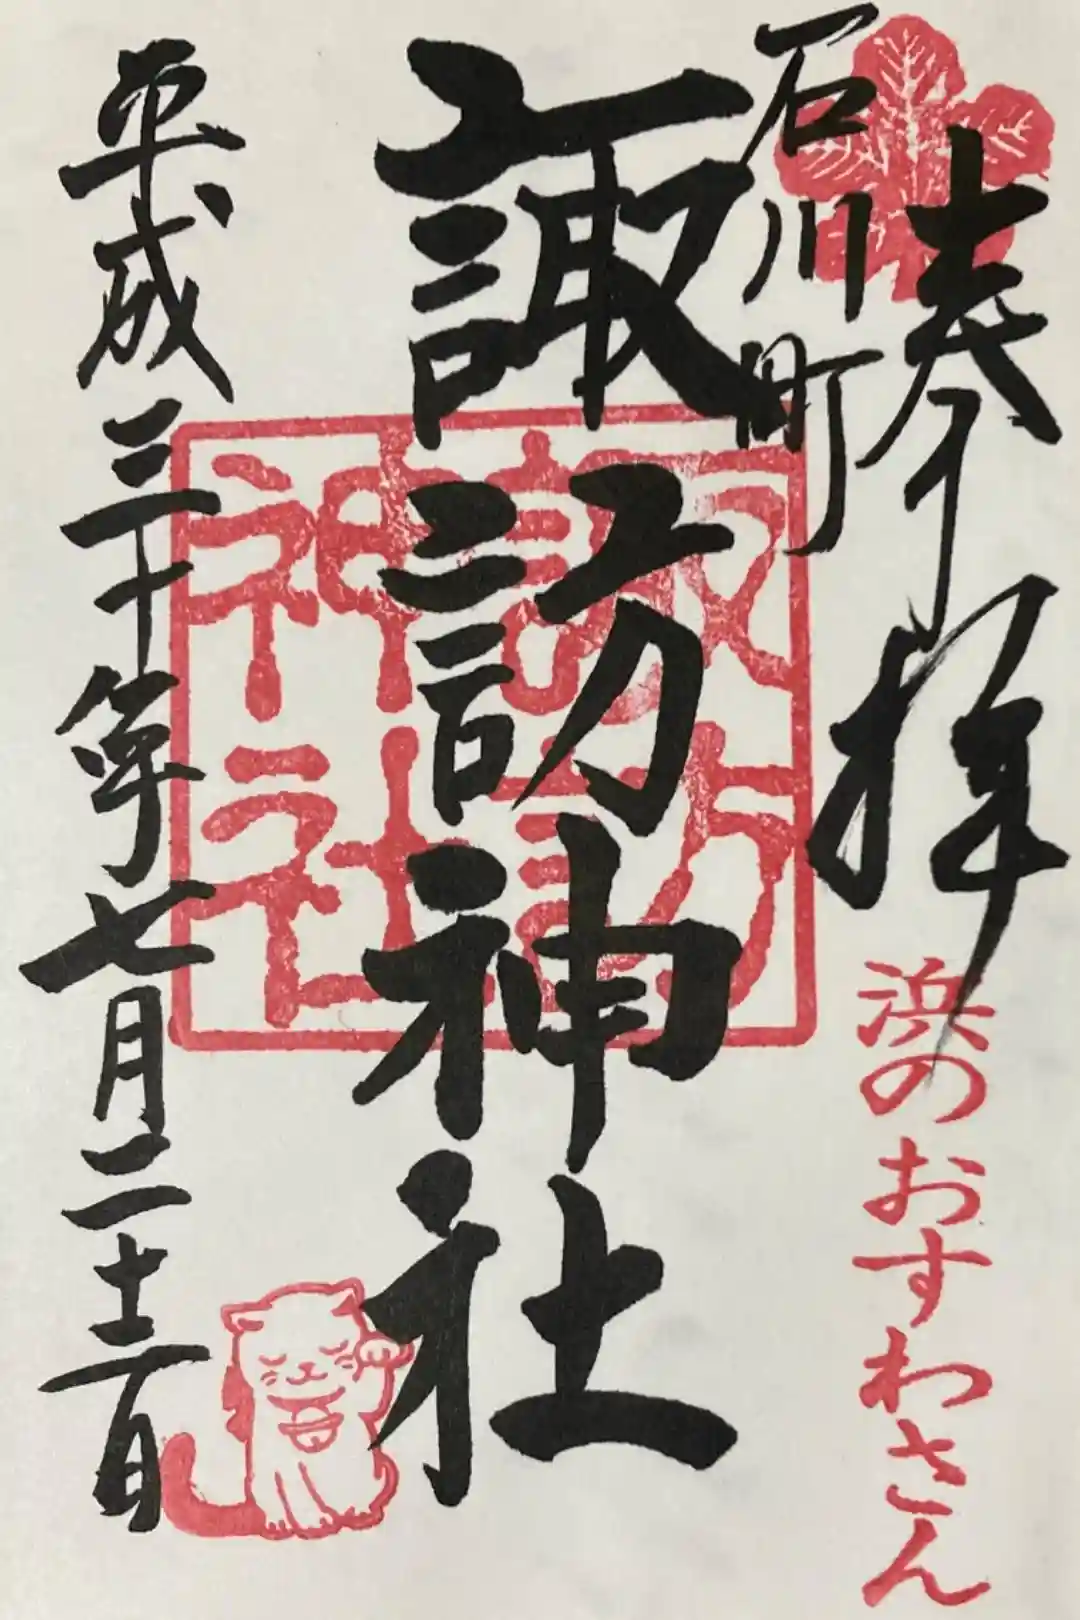 奉拝
石川町
浜のおすわさん
諏訪神社
諏訪
神社
平成三十年七月二十二日